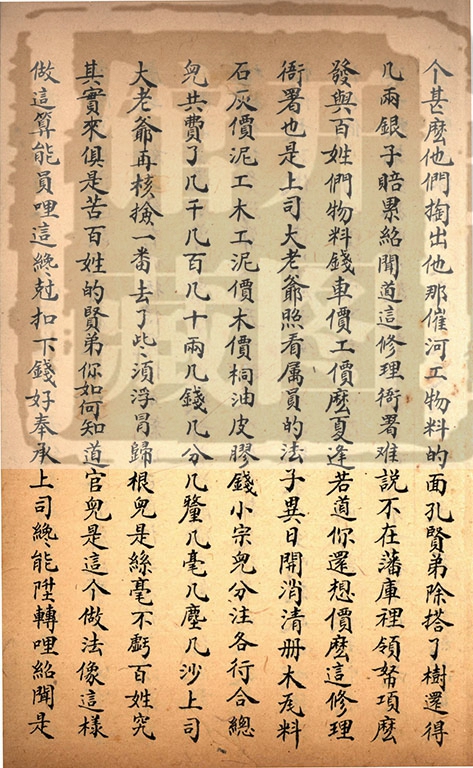 个甚麽他們掏出他那催河工物料的面孔賢弟除搭了樹還得
几兩銀子賠累紹聞道這修理衙署难說不在藩庫裡領帑項麽
發與百姓們物料錢車價工價麽夏逢若道你還想價麽這修理
衙署也是上司大老爺照看属員的法子異日開消清册木瓦料
石灰價泥工木工泥價木價桐油皮膠錢小宗兒分注各行合總
兒共費了几千几百几十兩几錢几分几釐几毫几塵几沙上司
大老爺再核撿一番去了些須浮冒歸根兒是絲毫不虧百姓究
其實來俱是苦百姓的賢弟你如何知道官兒是這个做法像這樣
做這算能員哩這緫尅扣下錢好奉承上司緫能陞轉哩紹聞是